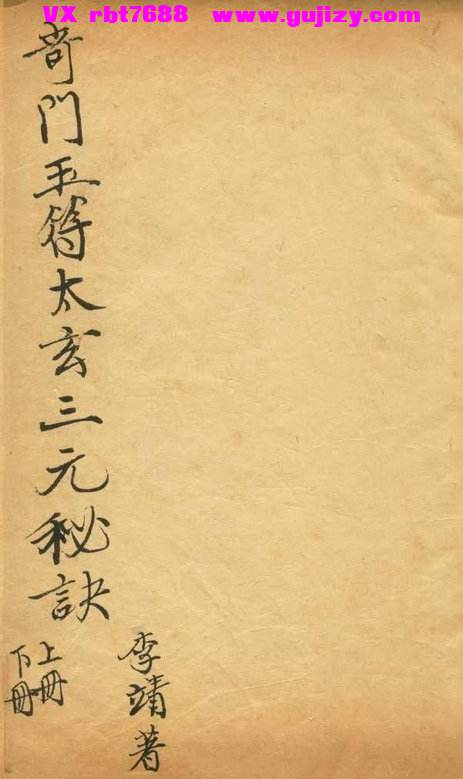 VX rbt7688 www.gujizy.com
奇門玉符太玄三元秘訣
李靖著
上冊
下冊